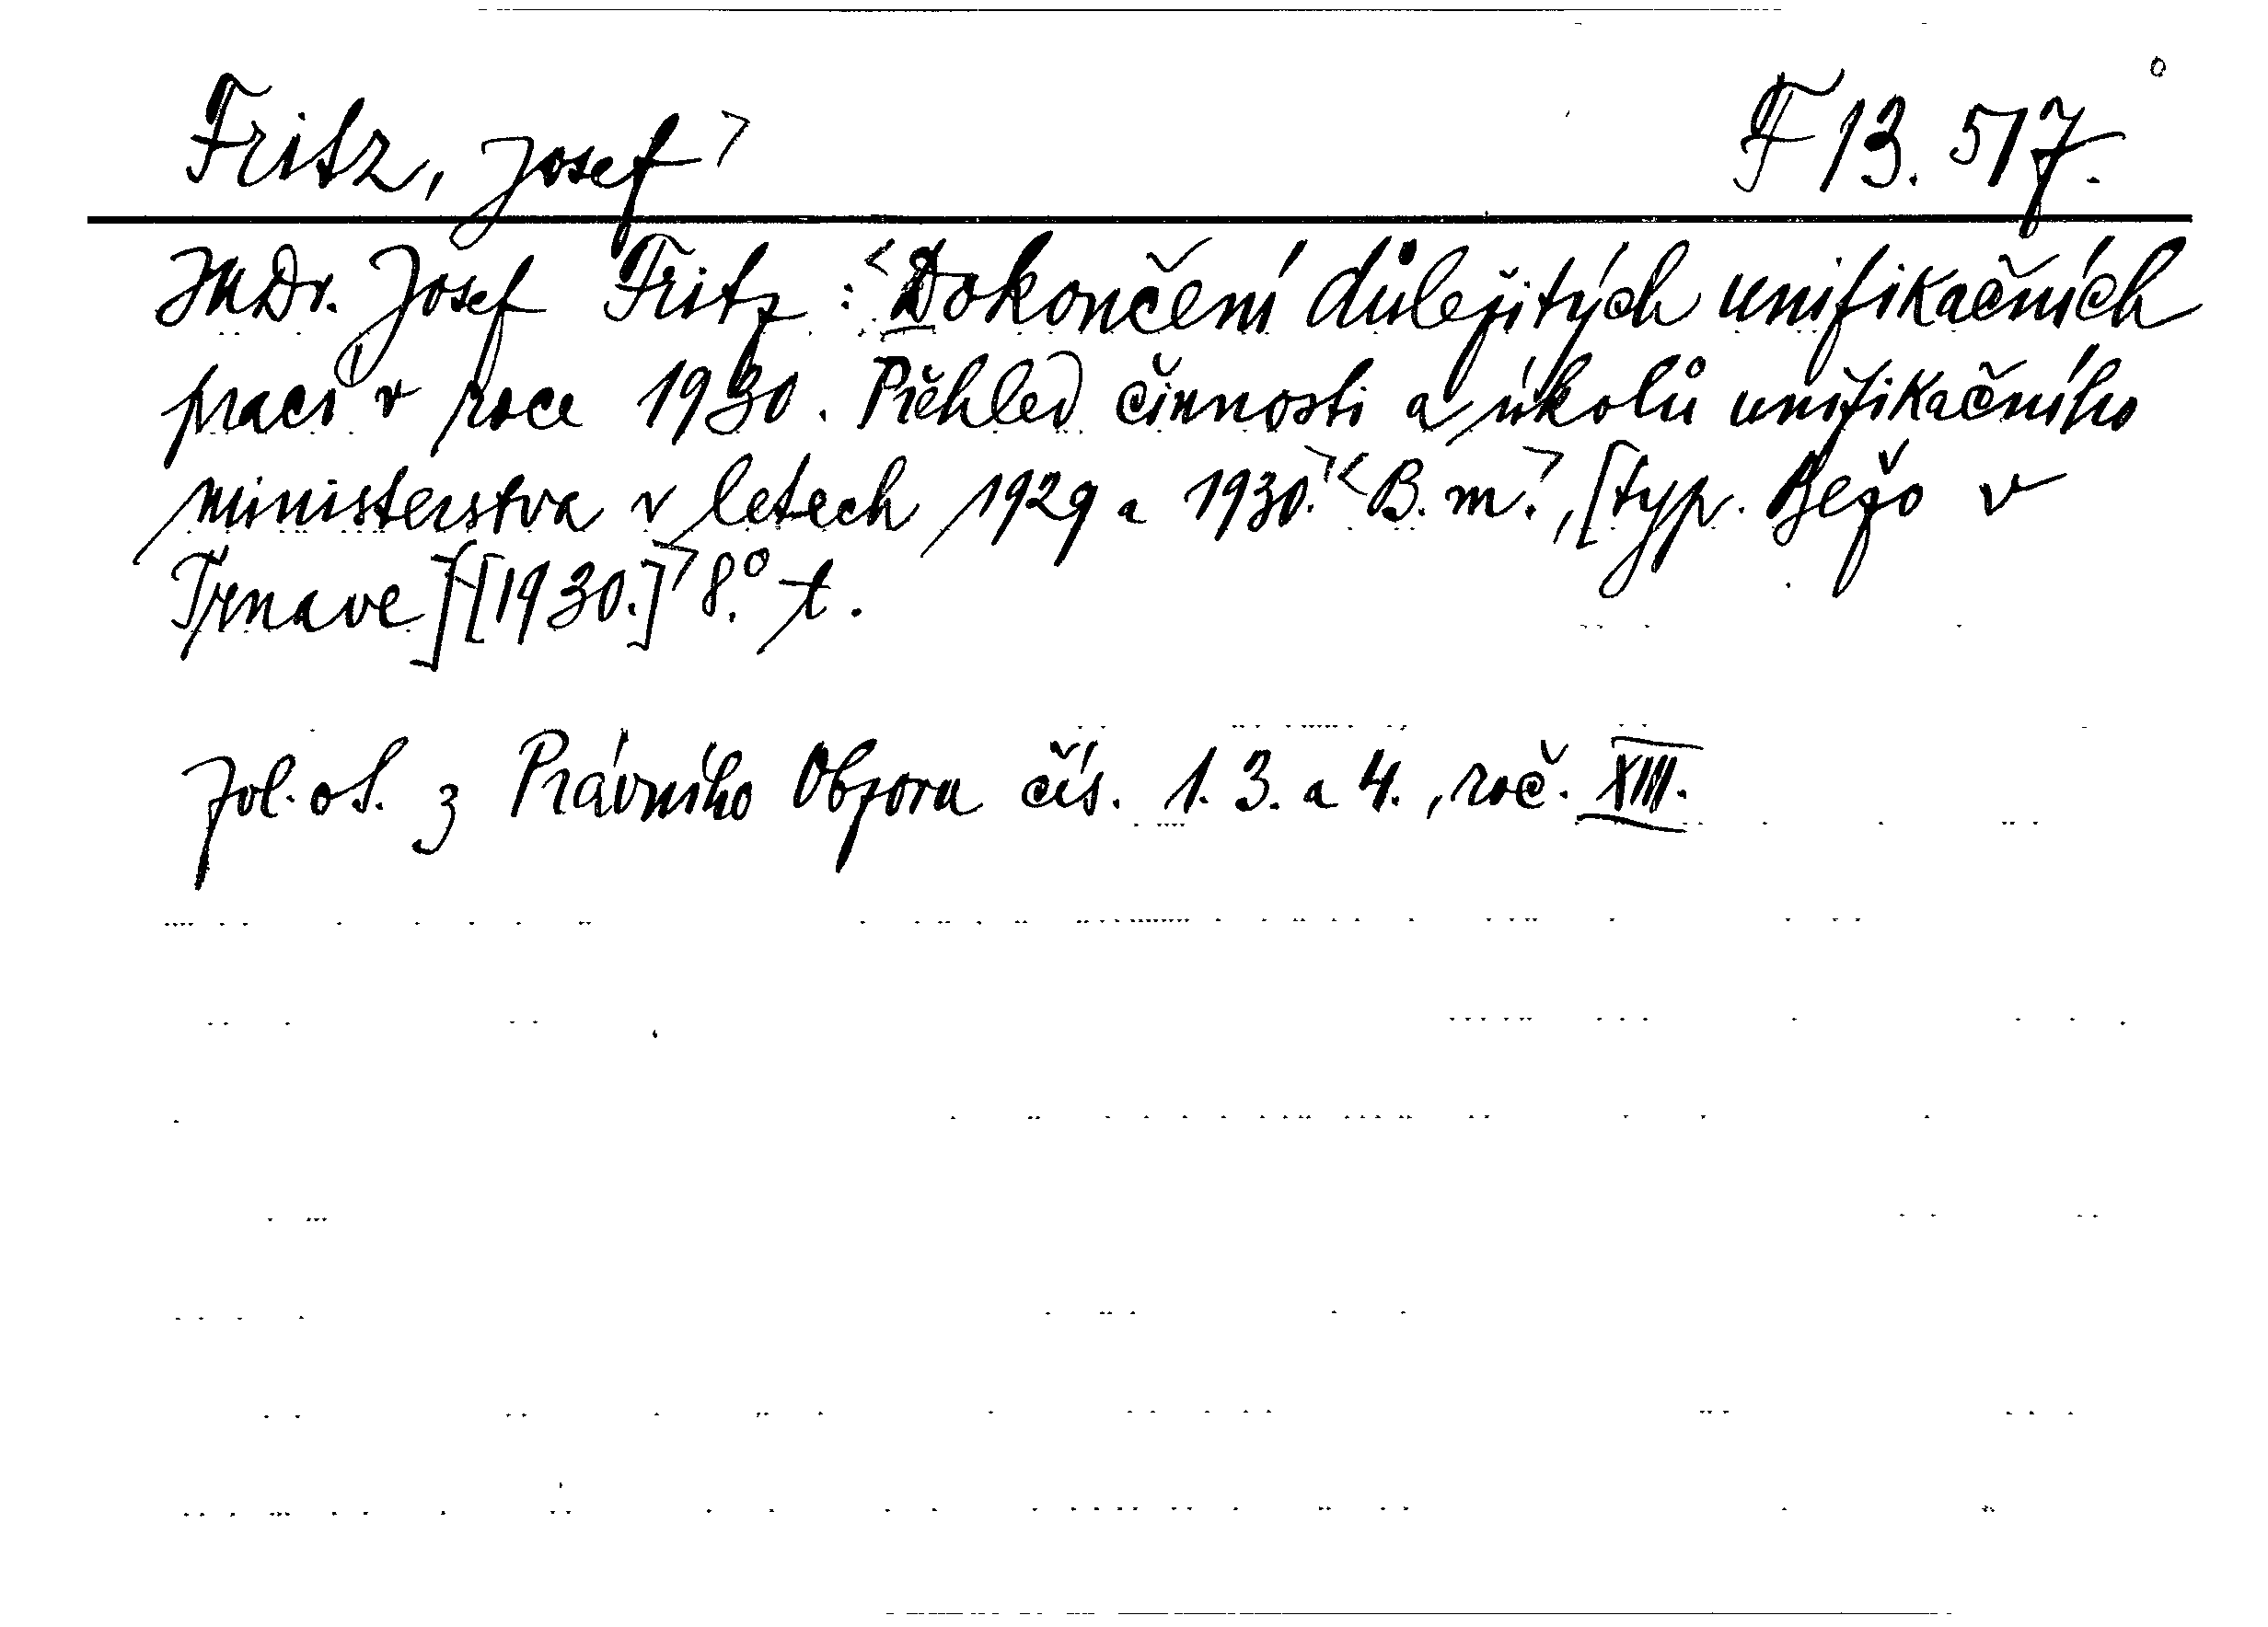 Fritz, Josef> F 13.517.
JUDr. Josef Fritz : <Dokončení důležitých unifikačních
prací v roce 1930. Přehled činnosti a úkolů unifikačního
ministerstva v letech 1929 a 1930.><B. m.>, [typ. Bežo v
Trnave][1930.]> 8.° t.
zvl. ot. z Právního Obzoru čís. 1. 3. a 4., roč. XIII.